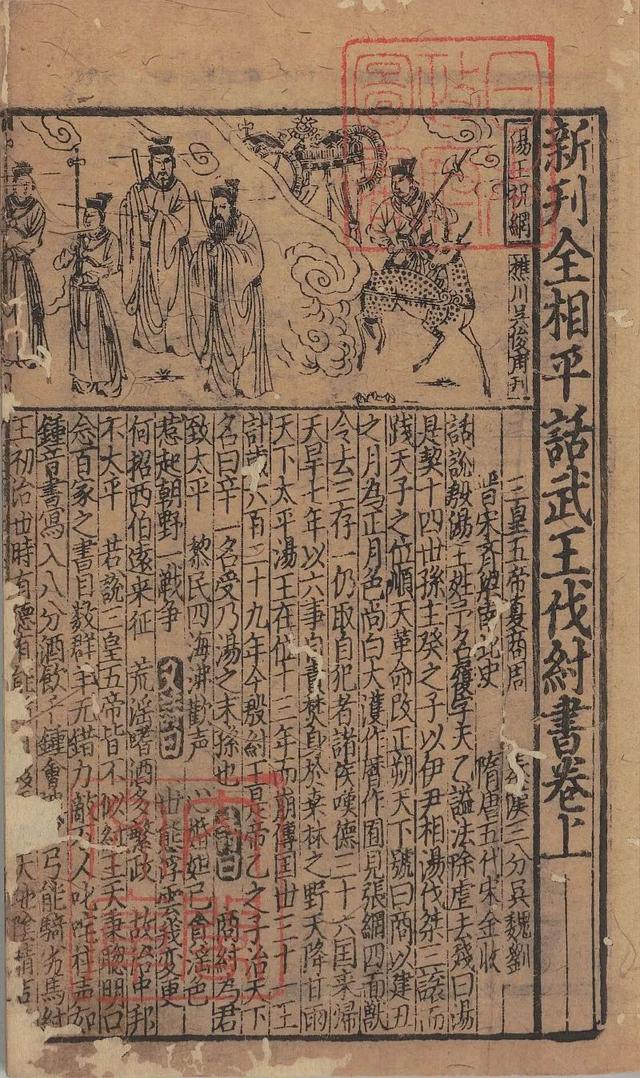 新刊全相平話武王伐紂書卷上
湯王祝網
樵川吳俊甫刊
三皇五帝夏商周 秦漢三分吳魏劉
晉宋齊梁南北史 隋唐五代宋金收
話說殷湯王姓子名履字天乙謚法除虐去殘曰湯
是契十四世孫主癸之子以伊尹相湯伐桀三讓而
踐天子之位順天革命改正朔天下號曰商以建丑
之月為正月色尚白大濩作樂作囿見張網四面獸
令去三存一仍取自犯者諸侯嘆德三十六囯來歸
天旱七年以六事自責焚身於桑林之野天降甘雨
天下太平湯王在位十三年而崩傳囯廿三十一王
計歲六百二十九年今殷紂王是帝乙之子治天下
名曰辛一名受乃湯之末孫也 詩曰 商紂為君
致太平 黎民四海沸歡声 妲己貪淫色
惹起朝野一戰争 又詩曰 世態浮雲幾變更
何招西伯遠來征 荒淫嗜酒多繁政 故治中邦
不太平 若說三皇五帝皆不似紂王天秉聰明口
念百家之書目数群羊无錯力敵万人叱咤柱声如
鍾音書寫入八分酒飲千鍾會 弓能騎劣馬紂
王初治世時有德有能 天神陰輔佐